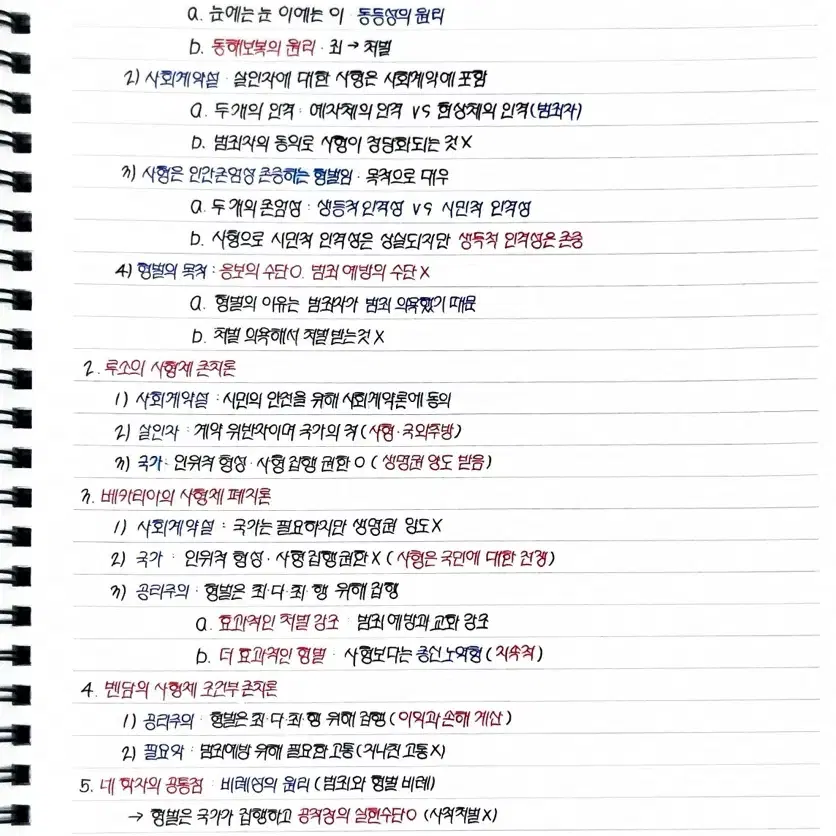 a. 눈에는 눈 이에는 이 · 동등성의 원리
b. 동해보복의 원리 · 죄 → 처벌
2) 사회계약설 · 살인자에 대한 사형은 사회계약에 포함
a. 두 개의 인격 : 예지체의 인격 vs 현상체의 인격(범죄자)
b. 범죄자의 동의로 사형이 정당화되는 것 X
3) 사형은 인간존엄성 존중하는 형벌임 · 목적으로 대우
a. 두 개의 존엄성 : 생득적 인격성 vs 시민적 인격성
b. 사형으로 시민적 인격성은 상실되지만 생득적 인격성은 존중
4) 형벌의 목적 : 응보의 수단O. 범죄 예방의 수단 X
a. 형벌의 이유는 범죄자가 범죄 의욕했기 때문
b. 처벌 의욕해서 처벌 받는 것 X
2. 루소의 사형제 존치론
1) 사회계약설 : 시민의 안전을 위해 사회계약론에 동의
2) 살인자 : 계약 위반자이며 국가의 적 (사형·국외추방)
3) 국가 : 인위적 형성 · 사형 집행 권한 O ( 생명권 양도 받음)
3. 베카리아의 사형제 폐지론
1) 사회계약설 : 국가는 필요하지만 생명권 양도X
2) 국가 : 인위적 형성 · 사형 집행권한 X ( 사형은 국민에 대한 전쟁)
3) 공리주의 : 형벌은 최·다·최·행 위해 집행
a. 효과적인 처벌 강조 : 범죄 예방과 교화 강조
b. 더 효과적인 형벌 · 사형보다는 종신노역형 ( 지속적)
4. 벤담의 사형제 조건부 존치론
1) 공리주의 · 형벌은 최·다·최·행 위해 집행 (이익과 손해 계산)
2) 필요악 · 범죄예방 위해 필요한 고통 (지나친 고통 X)
5. 네 학자의 공통점 · 비례성의 원리 (범죄와 형벌 비례)
→ 형벌은 국가가 집행하고 공적정의 실현수단O (사적처벌 X)